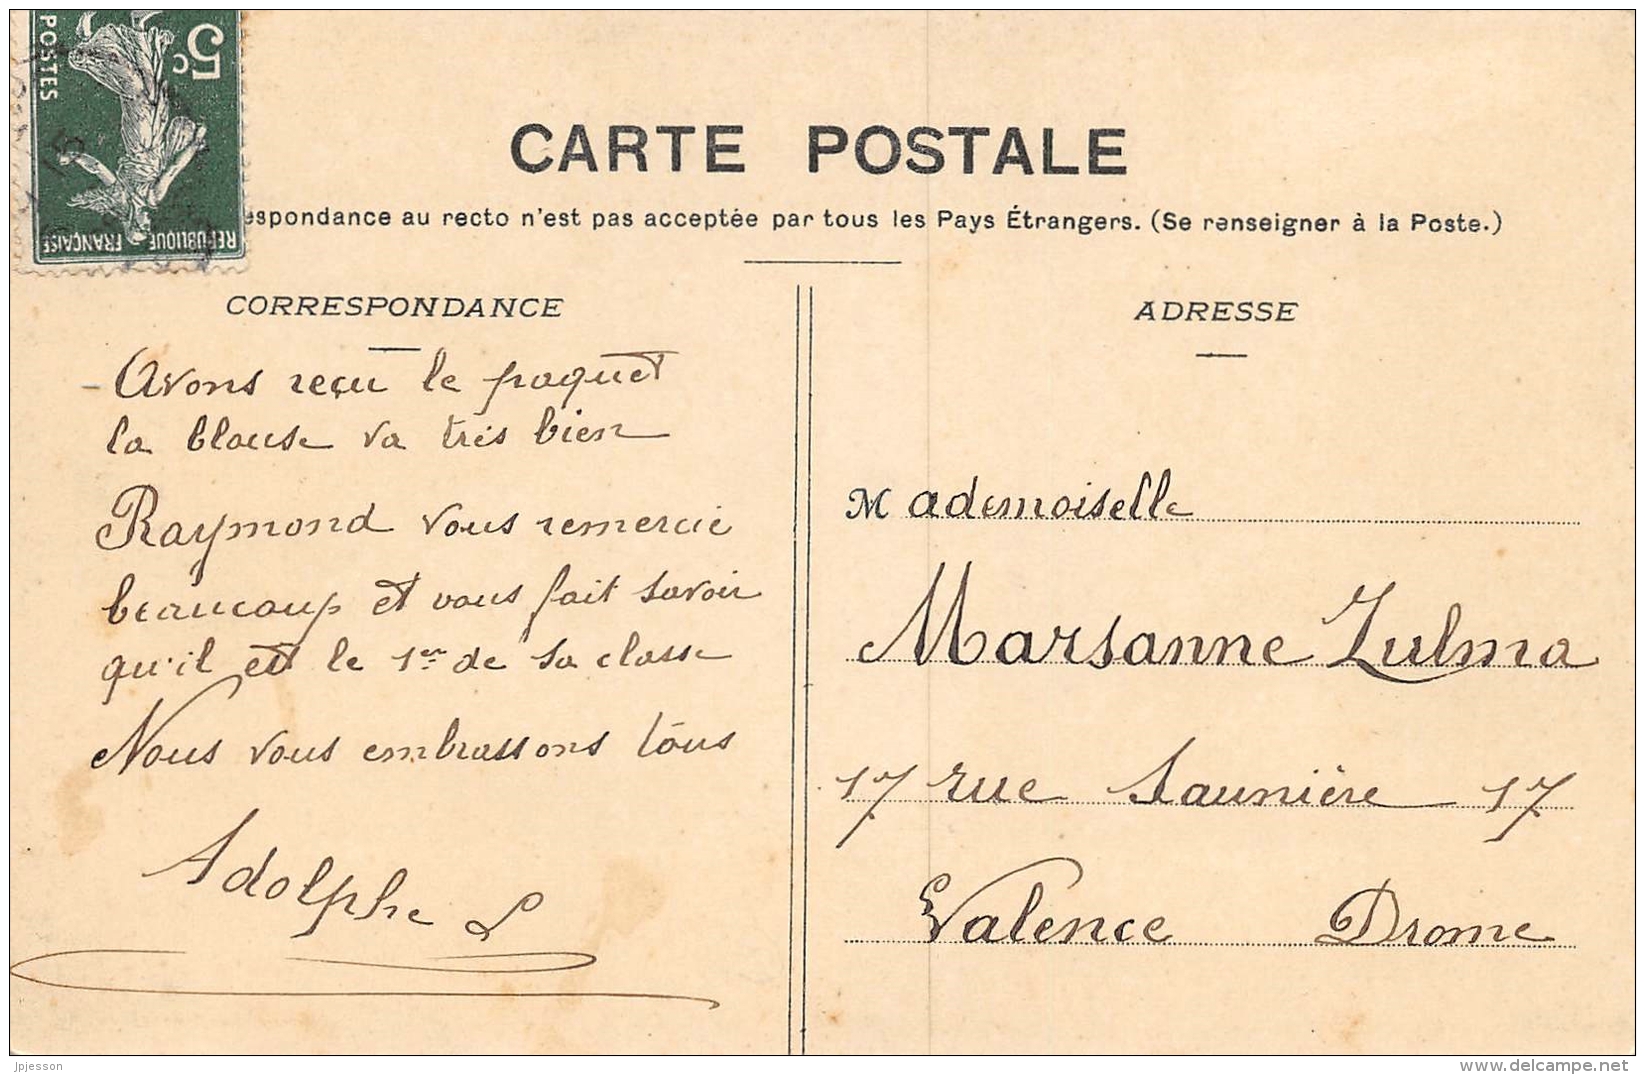 5c
POSTES
REPUBLIQUE FRANÇAISE
CARTE POSTALE
espondance au recto n'est pas acceptée par tous les Pays Étrangers. (Se renseigner à la Poste.)
CORRESPONDANCE
Avons reçu le paquet
la blouse va très bien
Raymond vous remercie
beaucoup et vous fait savoir
qu'il est le 1er de sa classe
Nous vous embrassons tous
Adolphe L
ADRESSE
Mademoiselle
Marsanne Zulma
17 rue Saunière 17
Valence Drome
jpjesson
www.delcampe.net